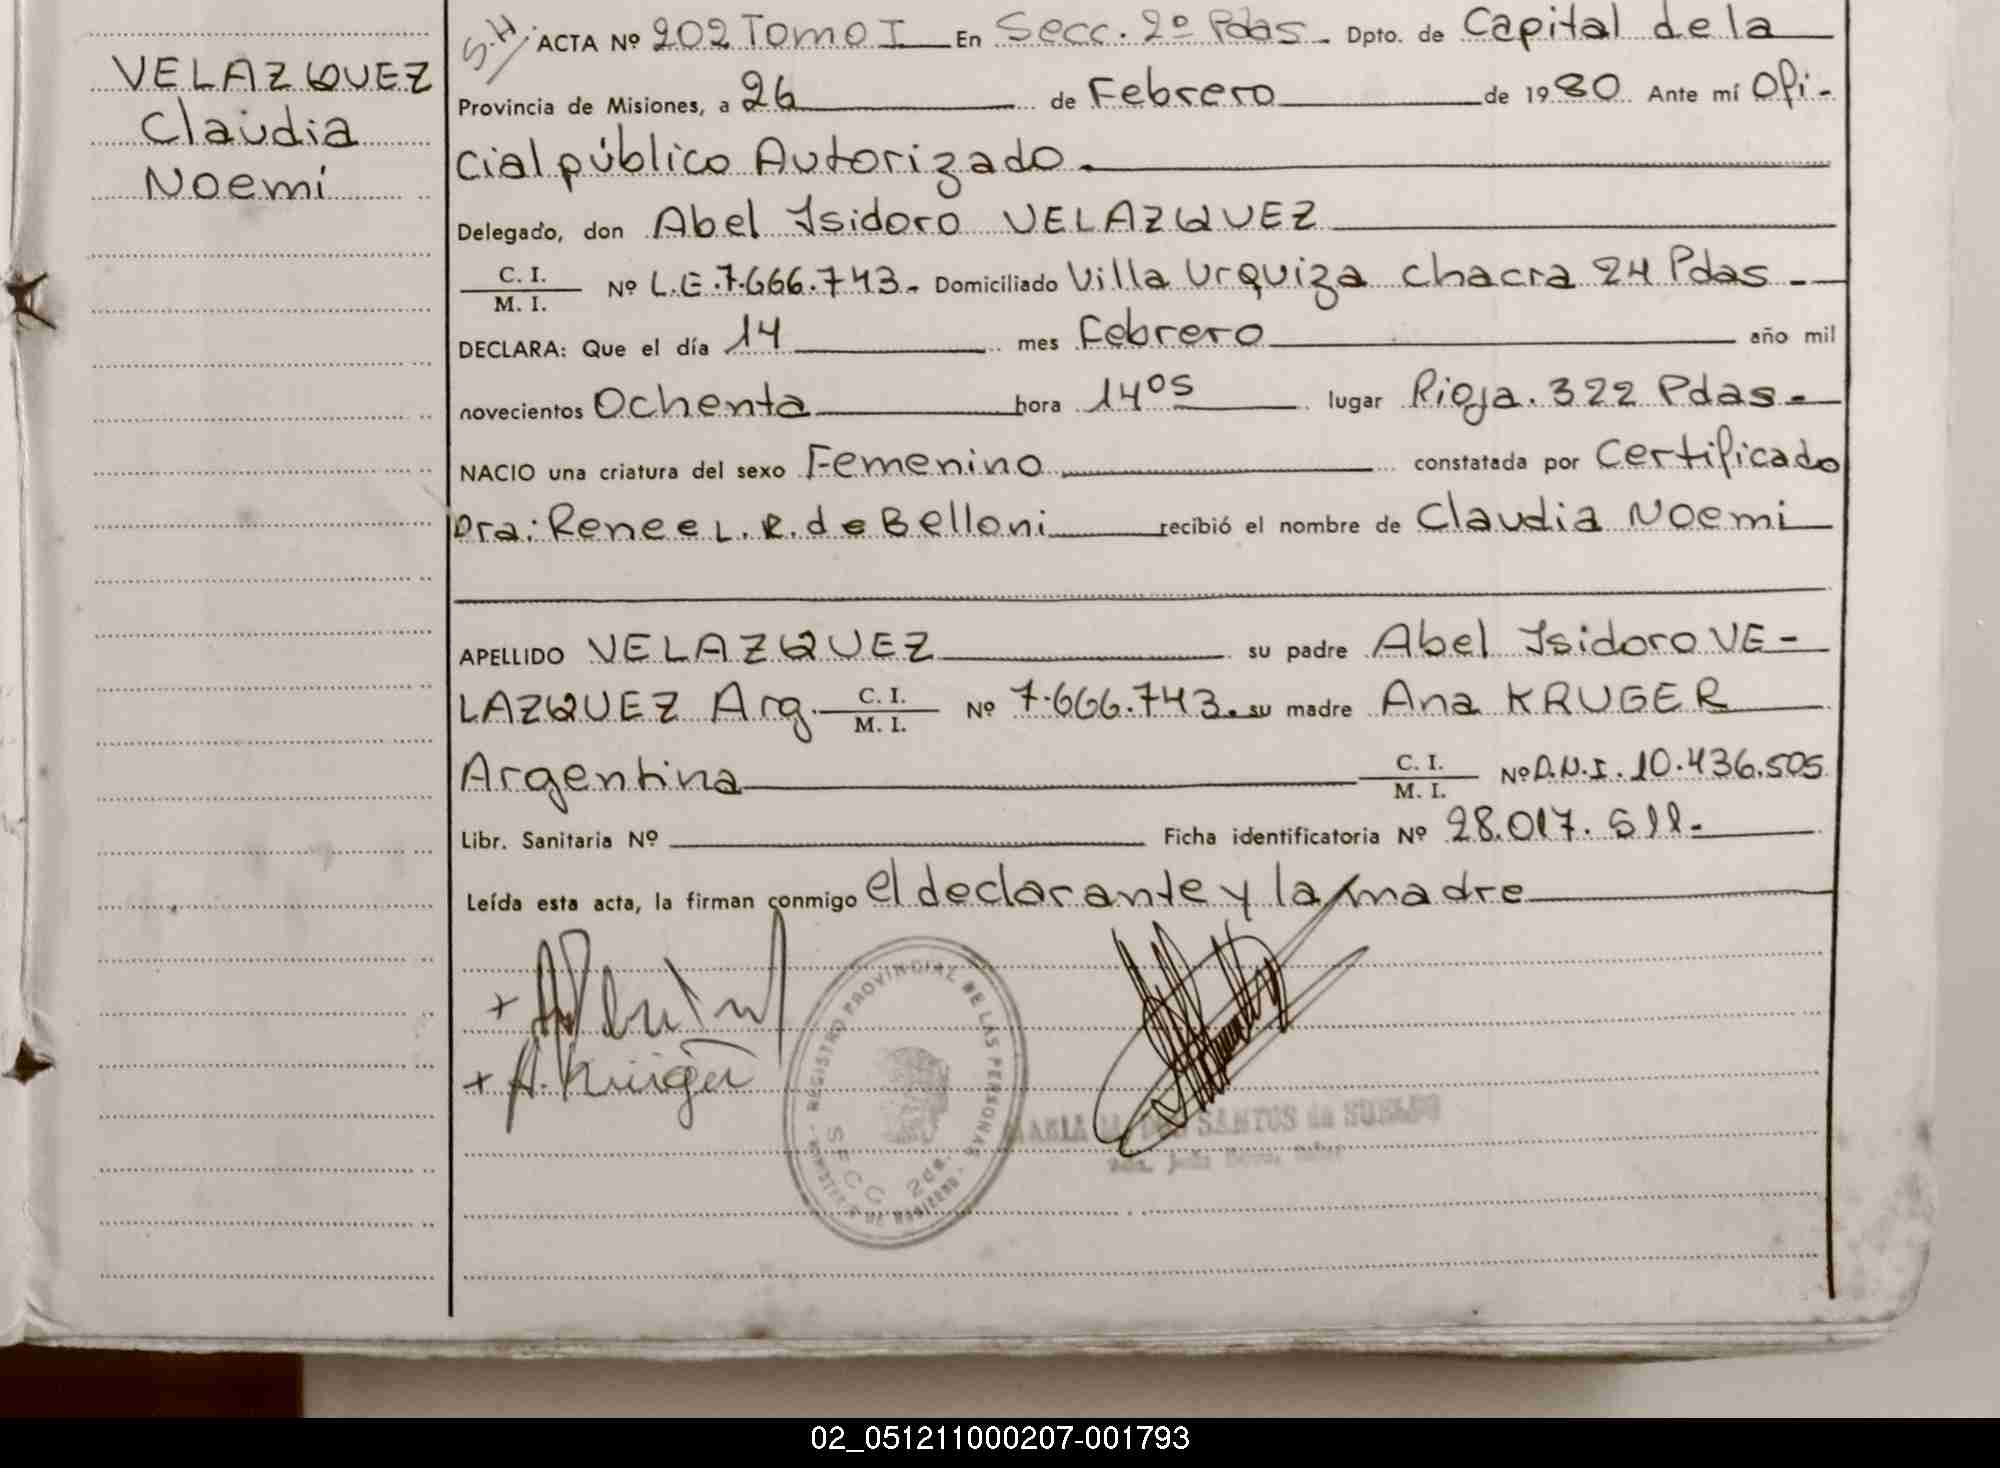 VELAZQUEZ
Claudia
Noemí
S.H. ACTA Nº 202 Tomo I En Secc. 2º Pdas. Dpto. de Capital de la
Provincia de Misiones, a 26 de Febrero de 1980 Ante mí Ofi-
cial público Autorizado.
Delegado, don Abel Isidoro VELAZQUEZ
C. I.
M. I. Nº L.E. 7.666.743.- Domiciliado Villa Urquiza Chacra 24 Pdas -
DECLARA: Que el día 14 mes Febrero año mil
novecientos Ochenta hora 14 05 lugar Rioja. 322 Pdas.-
NACIO una criatura del sexo Femenino constatada por Certificado
Dra: Renee L. R. de Belloni recibió el nombre de Claudia Noemi
APELLIDO VELAZQUEZ su padre Abel Isidoro VE-
LAZQUEZ Arg. C. I. M. I. Nº 7.666.743. su madre Ana KRUGER
Argentina C. I. M. I. Nº D.N.I. 10.436.505
Libr. Sanitaria Nº Ficha identificatoria Nº 28.017.511.-
Leída esta acta, la firman conmigo el declarante y la madre
+
+ A. Krüger
REGISTRO PROVINCIAL DE LAS PERSONAS
SECC 2da.
MINISTERIO DE GOBIERNO
DOS SANTOS de
02_051211000207-001793